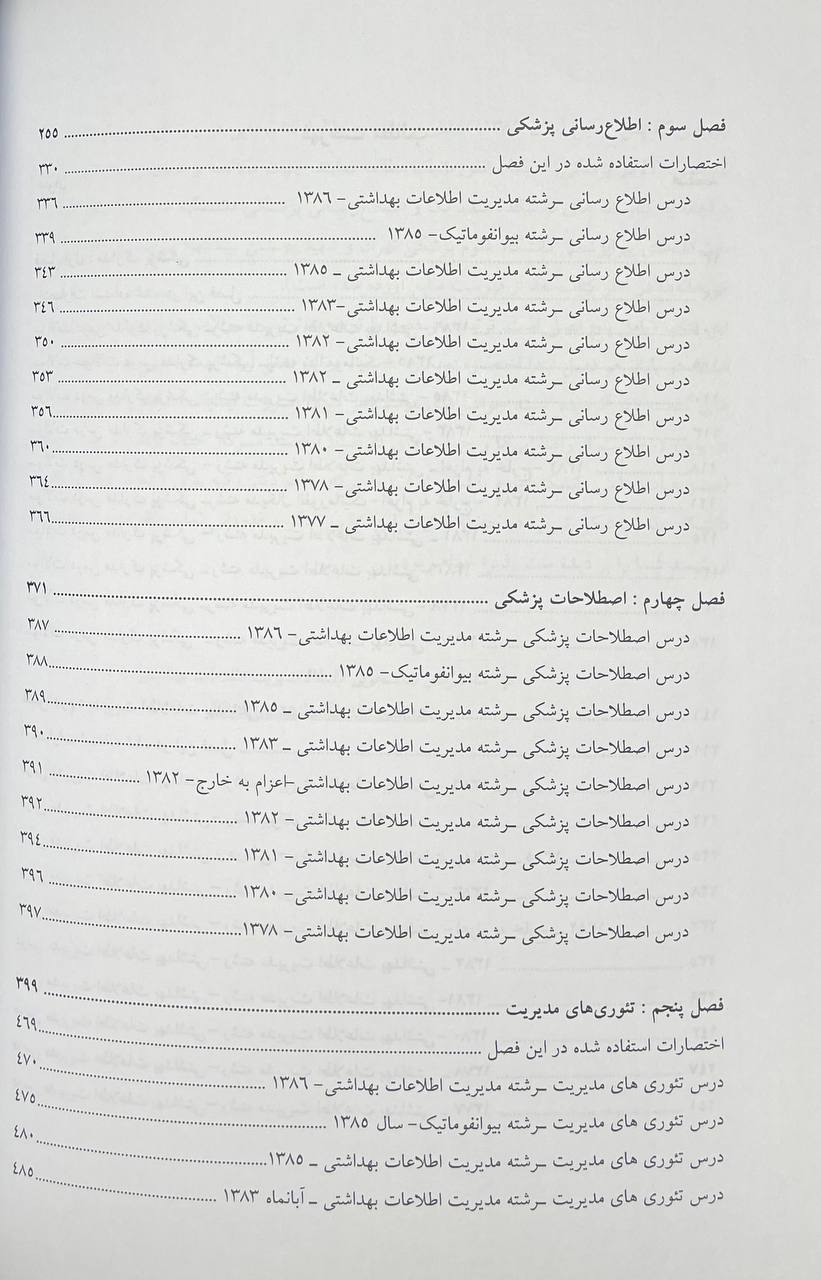 فصل سوم : اطلاع‌رسانی پزشکی ........ ۲۵۵
اختصارات استفاده شده در این فصل ........ ۳۳۰
درس اطلاع رسانی –رشته مدیریت اطلاعات بهداشتی– ۱۳۸۶ ........ ۳۳۶
درس اطلاع رسانی –رشته بیوانفوماتیک– ۱۳۸۵ ........ ۳۳۹
درس اطلاع رسانی –رشته مدیریت اطلاعات بهداشتی – ۱۳۸۵ ........ ۳٤۳
درس اطلاع رسانی –رشته مدیریت اطلاعات بهداشتی–۱۳۸۳ ........ ۳٤٦
درس اطلاع رسانی –رشته مدیریت اطلاعات بهداشتی– ۱۳۸۲ ........ ۳۵۰
درس اطلاع رسانی –رشته مدیریت اطلاعات بهداشتی – ۱۳۸۲ ........ ۳۵۳
درس اطلاع رسانی –رشته مدیریت اطلاعات بهداشتی– ۱۳۸۱ ........ ۳۵٦
درس اطلاع رسانی –رشته مدیریت اطلاعات بهداشتی– ۱۳۸۰ ........ ۳٦۰
درس اطلاع رسانی –رشته مدیریت اطلاعات بهداشتی– ۱۳۷۸ ........ ۳٦٤
درس اطلاع رسانی –رشته مدیریت اطلاعات بهداشتی – ۱۳۷۷ ........ ۳٦٦
فصل چهارم : اصطلاحات پزشکی ........ ۳۷۱
درس اصطلاحات پزشکی –رشته مدیریت اطلاعات بهداشتی– ۱۳۸٦ ........ ۳۸۷
درس اصطلاحات پزشکی –رشته بیوانفوماتیک– ۱۳۸۵ ........ ۳۸۸
درس اصطلاحات پزشکی –رشته مدیریت اطلاعات بهداشتی – ۱۳۸۵ ........ ۳۸۹
درس اصطلاحات پزشکی –رشته مدیریت اطلاعات بهداشتی – ۱۳۸۳ ........ ۳۹۰
درس اصطلاحات پزشکی –رشته مدیریت اطلاعات بهداشتی–اعزام به خارج– ۱۳۸۲ ........ ۳۹۱
درس اصطلاحات پزشکی –رشته مدیریت اطلاعات بهداشتی– ۱۳۸۲ ........ ۳۹۲
درس اصطلاحات پزشکی –رشته مدیریت اطلاعات بهداشتی– ۱۳۸۱ ........ ۳۹٤
درس اصطلاحات پزشکی –رشته مدیریت اطلاعات بهداشتی– ۱۳۸۰ ........ ۳۹٦
درس اصطلاحات پزشکی –رشته مدیریت اطلاعات بهداشتی– ۱۳۷۸ ........ ۳۹۷
فصل پنجم : تئوری‌های مدیریت ........ ۳۹۹
اختصارات استفاده شده در این فصل ........ ٤٦۹
درس تئوری های مدیریت –رشته مدیریت اطلاعات بهداشتی– ۱۳۸٦ ........ ٤۷۰
درس تئوری های مدیریت –رشته بیوانفوماتیک– سال ۱۳۸۵ ........ ٤۷۵
درس تئوری های مدیریت –رشته مدیریت اطلاعات بهداشتی – ۱۳۸۵ ........ ٤۸۰
درس تئوری های مدیریت –رشته مدیریت اطلاعات بهداشتی – آبانماه ۱۳۸۳ ........ ٤۸۵